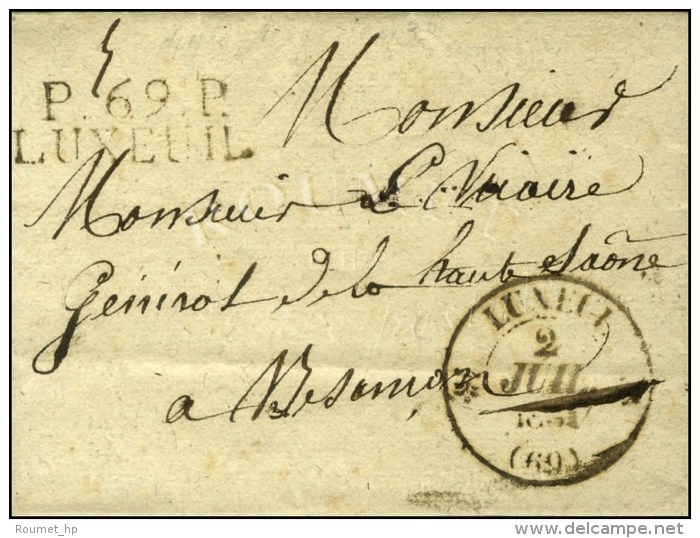 P. 69. P.
LUXEUIL
Monsieur
Monsieur Le Vicaire
Général de la haute Saône
a Besançon
LUXEUIL
2
JUIL.
1831
(69)
Roumet_hp
delcampe.net